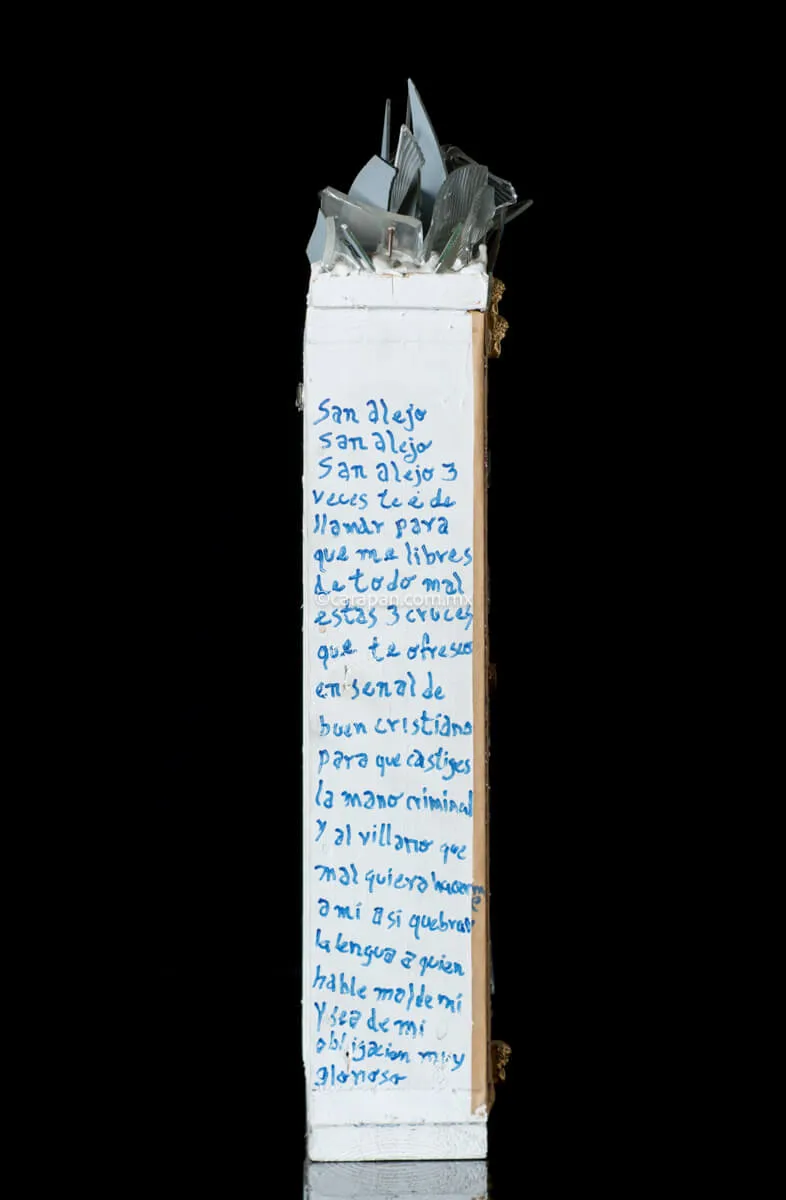 San alejo
San alejo
San alejo 3
veces te é de
llamar para
que me libres
de todo mal
©carapan.com.mx
estas 3 cruces
que te ofresco
en senal de
buen cristiano
para que castiges
la mano criminal
y al villano que
mal quiera hacerme
a mí a si quebrar
la lengua a quien
hable mal de mí
y sea de mi
obligacion muy
glorioso